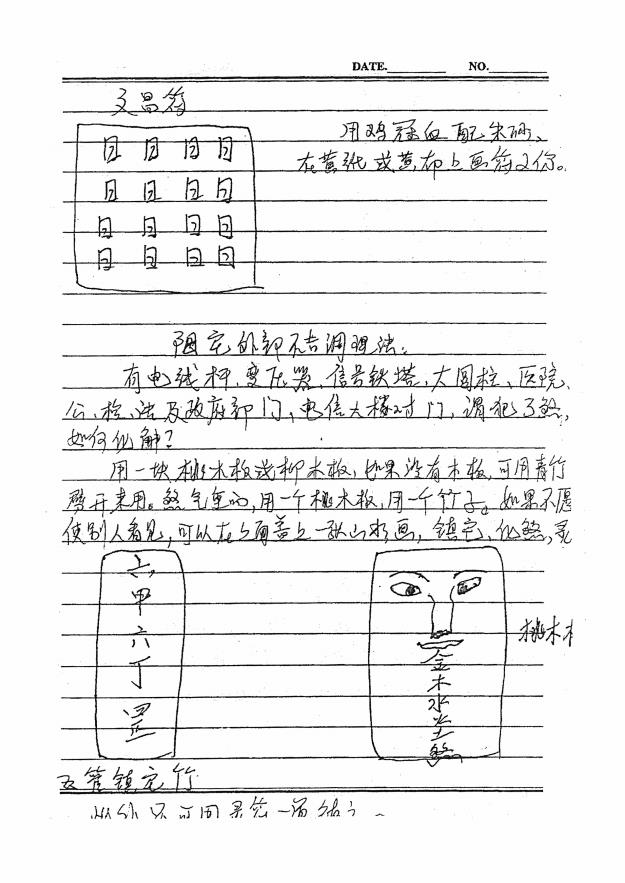 DATE. NO.
文昌符
用鸡冠血配朱砂、
在黄纸或黄布上画符
日 日 日 日
日 日 日 日
日 日 日 日
日 日 日 日
阳宅外部不吉调理法:
有电线杆,变压器,信号铁塔,大圆柱、医院、
公、检、法及政府部门,电信大楼对门,谓犯了煞,
如何化解?
用一块桃木板或柳木板,如果没有木板,可用青竹
劈开来用。煞气重的,用一个桃木板,用一个竹子。如果不愿
使别人看见,可以在上面盖上一张山水画,镇宅,化煞,灵
六
甲
六
丁
罡
金
木
水
火
土
煞
桃木
镇宅竹